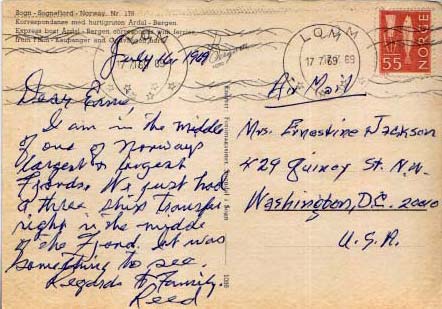 Sogn - Sognefjord - Norway. Nr. 178
Korrespondanse med hurtigruten Årdal - Bergen.
Express boat Årdal - Bergen correspond with ferries
from
Kaupanger and
July 16, 1969
LOM
17.7.69
LOM
17.7.69
Bergen
NORGE
55
Dear Ernie,
I am in the middle
of one of Norways
largest & longest
Fjords. We just had
a three ship transfer
right in the middle
of the Fjord. It was
something to see.
Regards to Family.
Reed
Air Mail
Mrs. Ernestine Jackson
429 Quincy St. N.W.
Washington, D.C. 20010
U.S.A.
i Sogn